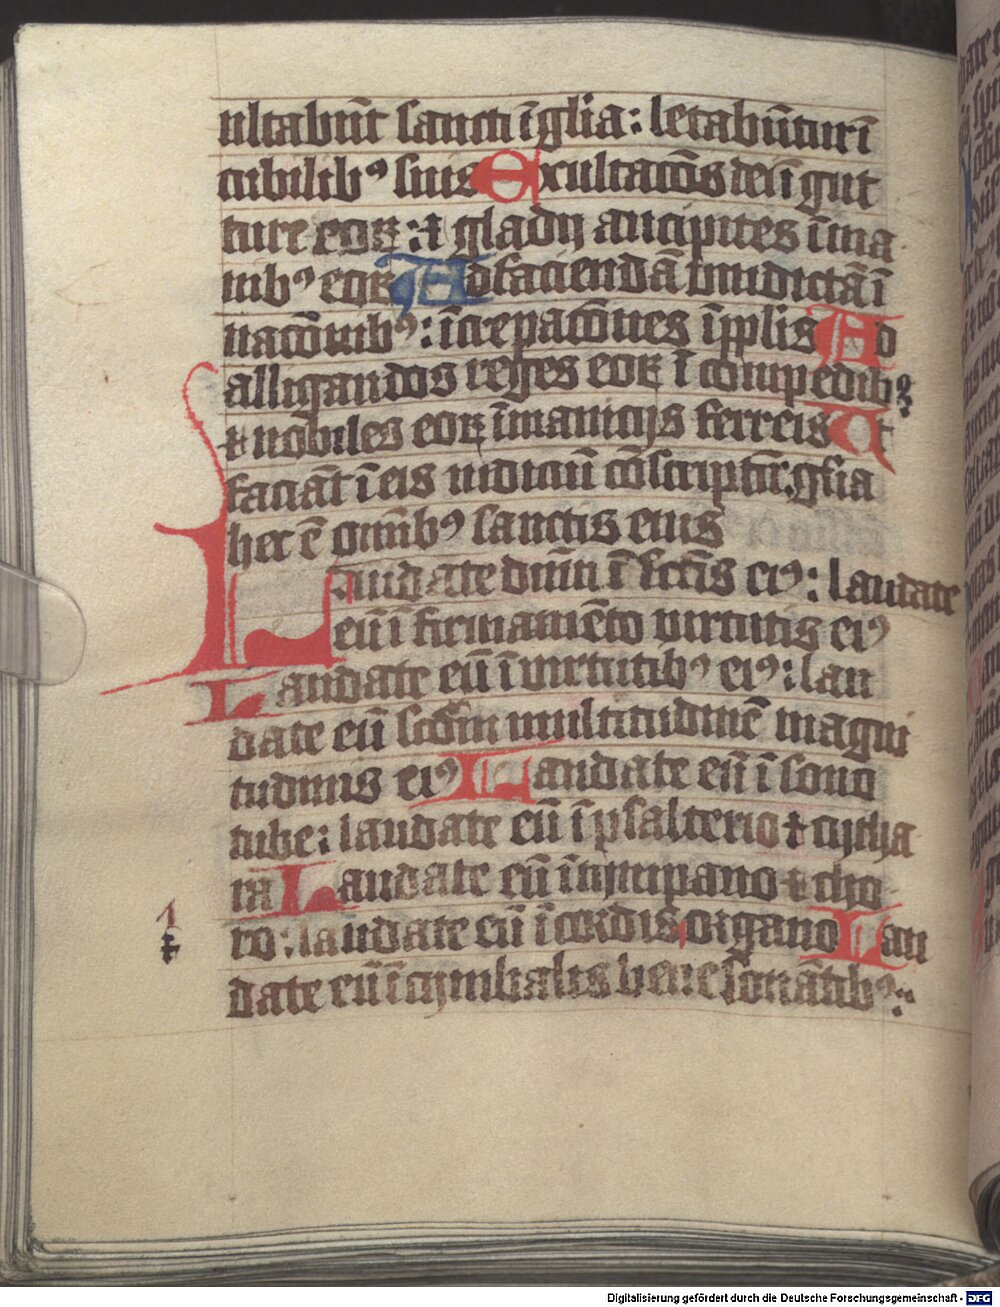 ultabūt sancti ī glīa: letabūtur ī
cubilibꝰ suis Exultatōs dei ī gut
ture eoꝝ: ⁊ gladij ancipites ī ma
nibꝰ eoꝝ Ad faciendā vindictā ī
natōnibꝰ: īcrepatōnes ī pp̄lis Ad
alligandos reges eoꝝ ī compedibꝫ
⁊ nobiles eoꝝ ī manicijs ferreis Ut
faciāt ī eis iudiciū cōscriptū: gl̄ia
hec ē om̄ibꝰ sanctis eius
Laudate dn̄m ī sc̄tis eiꝰ: laudate
eū ī firmamēto virtutis eiꝰ
Laudate eū ī virtutibꝰ eiꝰ: lau
date eū scd̄m multitudinē magni
tudinis eiꝰ Laudate eū ī sono
tube: laudate eū ī psalterio ⁊ cytha
ra Laudate eū ī tympano ⁊ cho
ro: laudate eū ī cordis ⁊ organo Lau
date eū ī cymbalis bene sonātibꝰ:
Digitalisierung gefördert durch die Deutsche Forschungsgemeinschaft - DFG